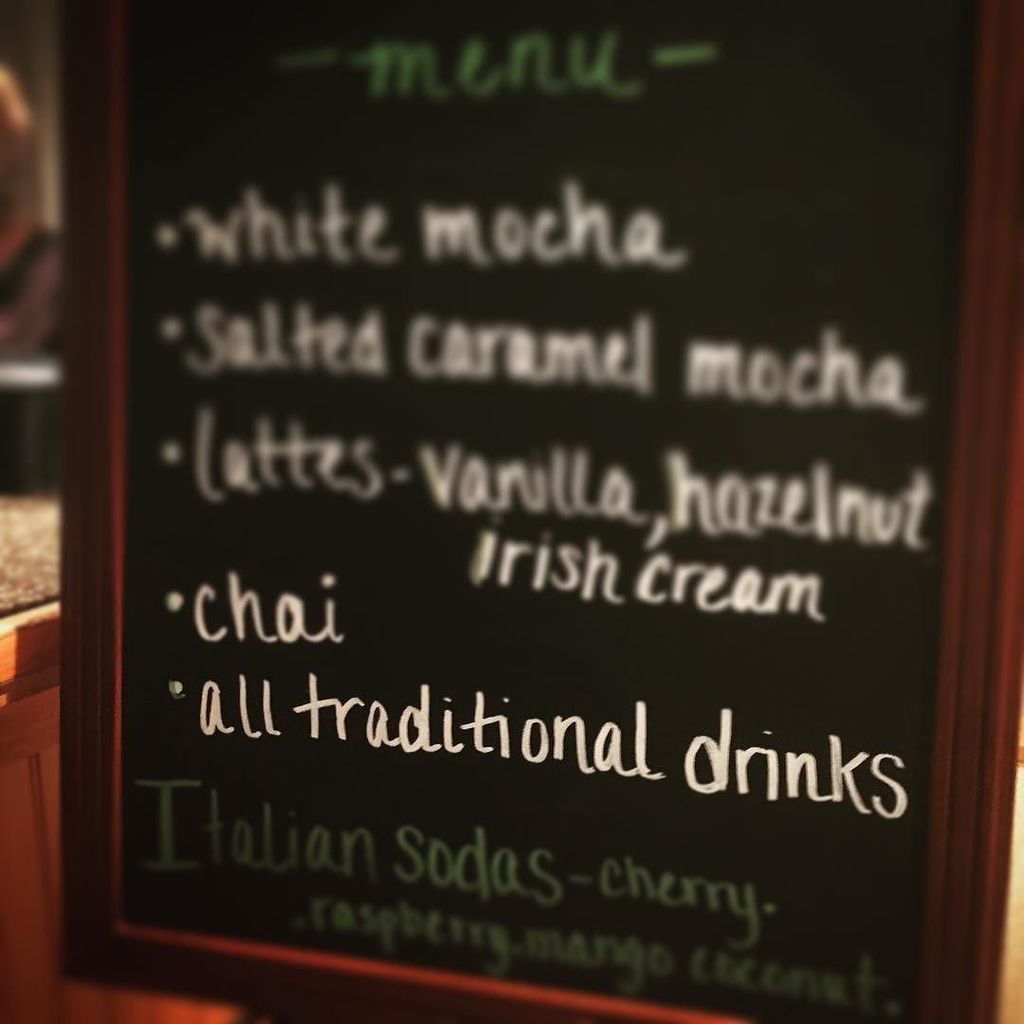 -menu-
•white mocha
•salted caramel mocha
•lattes-vanilla, hazelnut
irish cream
•chai
•all traditional drinks
Italian sodas-cherry.
.raspberry.mango coconut.